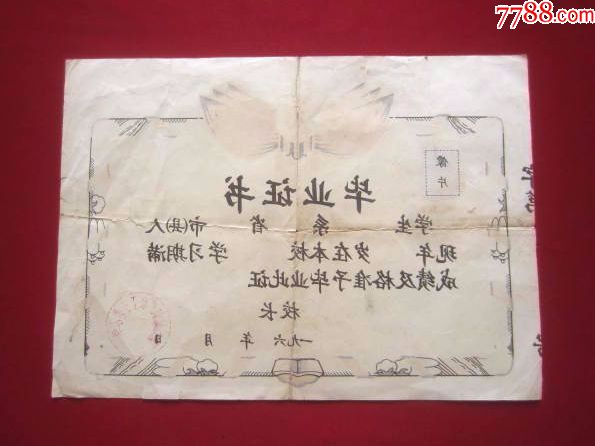 7788.com
像片
毕业证书
学生 系 省 市(县)人
现年 岁在本校 学习期满
成绩及格准予毕业此证
校长
一九六 年 月 日